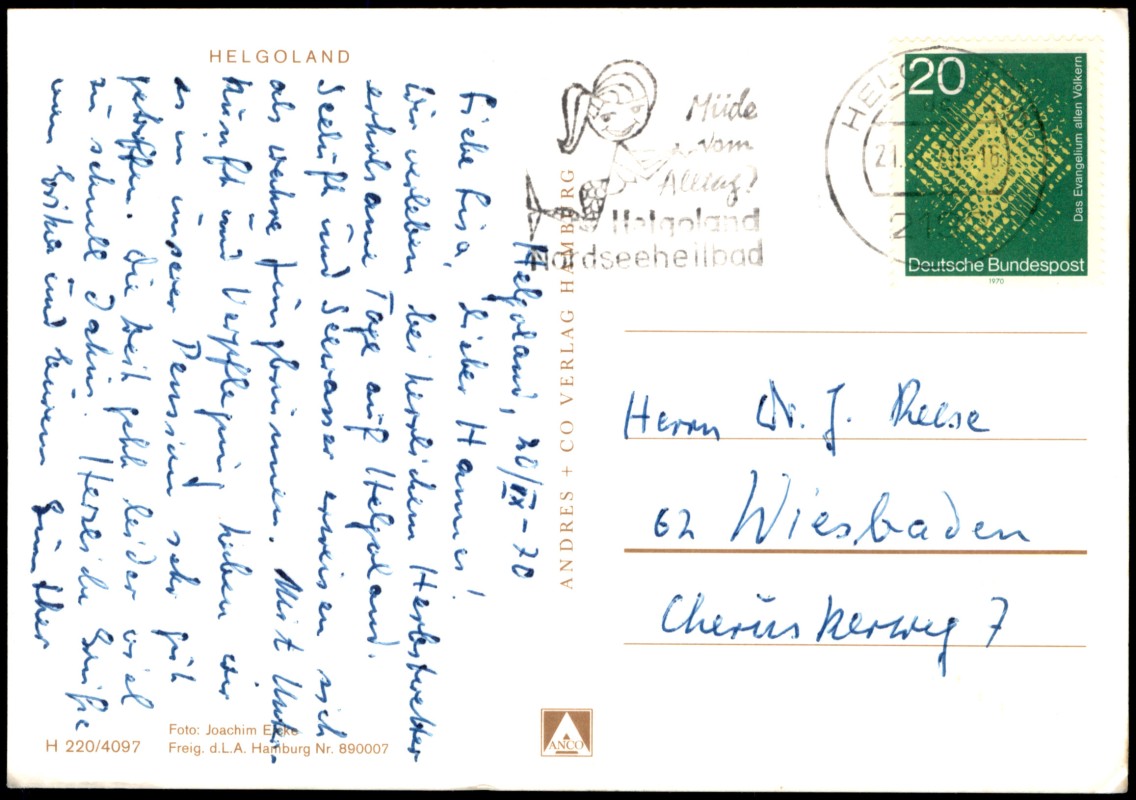 HELGOLAND
Helgoland, 20/IX-70
Liebe Lisa, lieber Hannes!
Wir verleben bei herrlichem Herbstwetter
erholsame Tage auf Helgoland.
Seeluft und Seewasser erweisen sich
als wahre Jungbrunnen. Mit Unter-
kunft und Verpflegung haben wir
es in unserer Pension sehr gut
getroffen. Die Zeit geht leider viel
zu schnell dahin. Herzliche Grüße
von Erika und Eurem Günther
H 220/4097
Foto: Joachim
Freig. d.L.A. Hamburg Nr. 890007
ANDRES + CO VERLAG HAMBURG
ANCO
Müde
vom
Alltag?
Helgoland
Nordseeheilbad
HELGOLAND
21.
18
219
20
Das Evangelium allen Völkern
Deutsche Bundespost
1970
Herrn Dr. J. Reese
62 Wiesbaden
Cheruskerweg 7